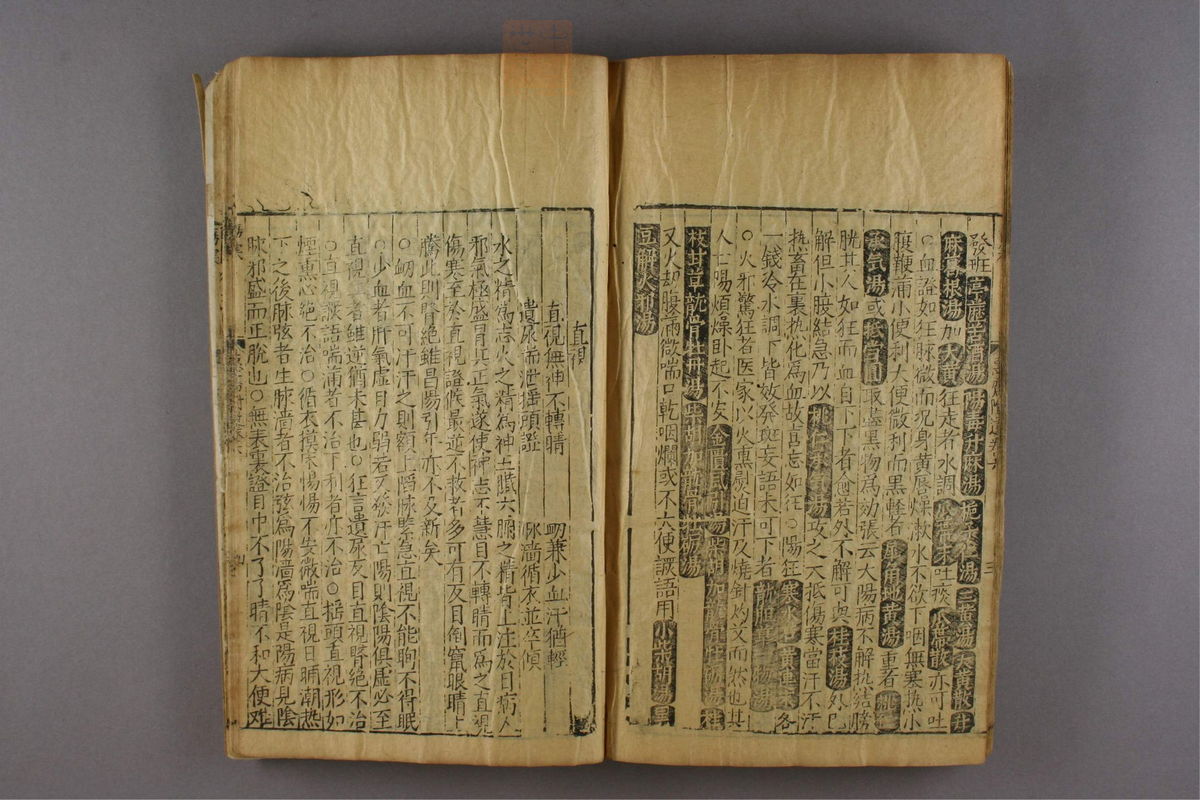 發班葶藶苦酒湯陽毒升麻湯梔子仁湯三黃湯大黃散甘
麻黃根湯加大黃狂走者水調瓜蒂末吐痰瓜蒂散亦可吐
○血證如狂脉微而沉身黃唇燥漱水不欲下咽無寒熱小
腹鞕滿小便利大便微利而黑輕者犀角地黃湯重者桃仁
承气湯或抵當圓取盡黑物為効張云太陽病不解热結膀
胱其人如狂而血自下下者愈若外不解可與桂枝湯外已
解但小腹結急乃以桃仁承气湯攻之又抵傷寒當汗不汗
热畜在裏热化為血故喜忘如狂○陽狂寒水石黃連末各
一錢冷水調下皆效發斑妄語未可下者
○火邪驚狂者医家以火熏刼迫汗及燒針灼艾而然也其
人亡陽煩燥卧起不安金匱風引湯柴胡加龍骨牡蛎湯桂
枝甘草龍骨牡丹湯柴胡加龍骨牡蛎湯
又火却腹滿微喘口乾咽爛或不大便讝語用小柴胡湯黑
豆解火和湯
直視
直視無神不轉睛　衂兼少血汗猶輕
遺尿喘泄搖頭證　脉濇循衣並卒傾
水之精為志火之精為神五臟六腑之精皆上注於目病人
邪氣極盛冒其正氣遂使神志不慧目不轉睛而為之直視
傷寒至於直視證候最逆不救者多可有反目倒竄眼睛上
騰此則腎絕雖昌陽引年亦不及新矣
○衂血不可汗汗之則額上陷脉緊急直視不能眴不得眠
○少血者肝氣虛目力弱若又發汗亡陽則陰陽俱虛必至
直視者雖逆猶未甚也○狂言遺尿反目直視腎絕不治
○直視讝語喘滿者不治下利者亦不治○搖頭直視形如
煙熏心絕不治○循衣摸床惕惕不安微喘直視日晡潮热
下之後脉弦者生脉濇者不治弦為陽濇為陰是陽病見陰
脉邪盛而正脫也○無表裏證目中不了了睛不和大便难